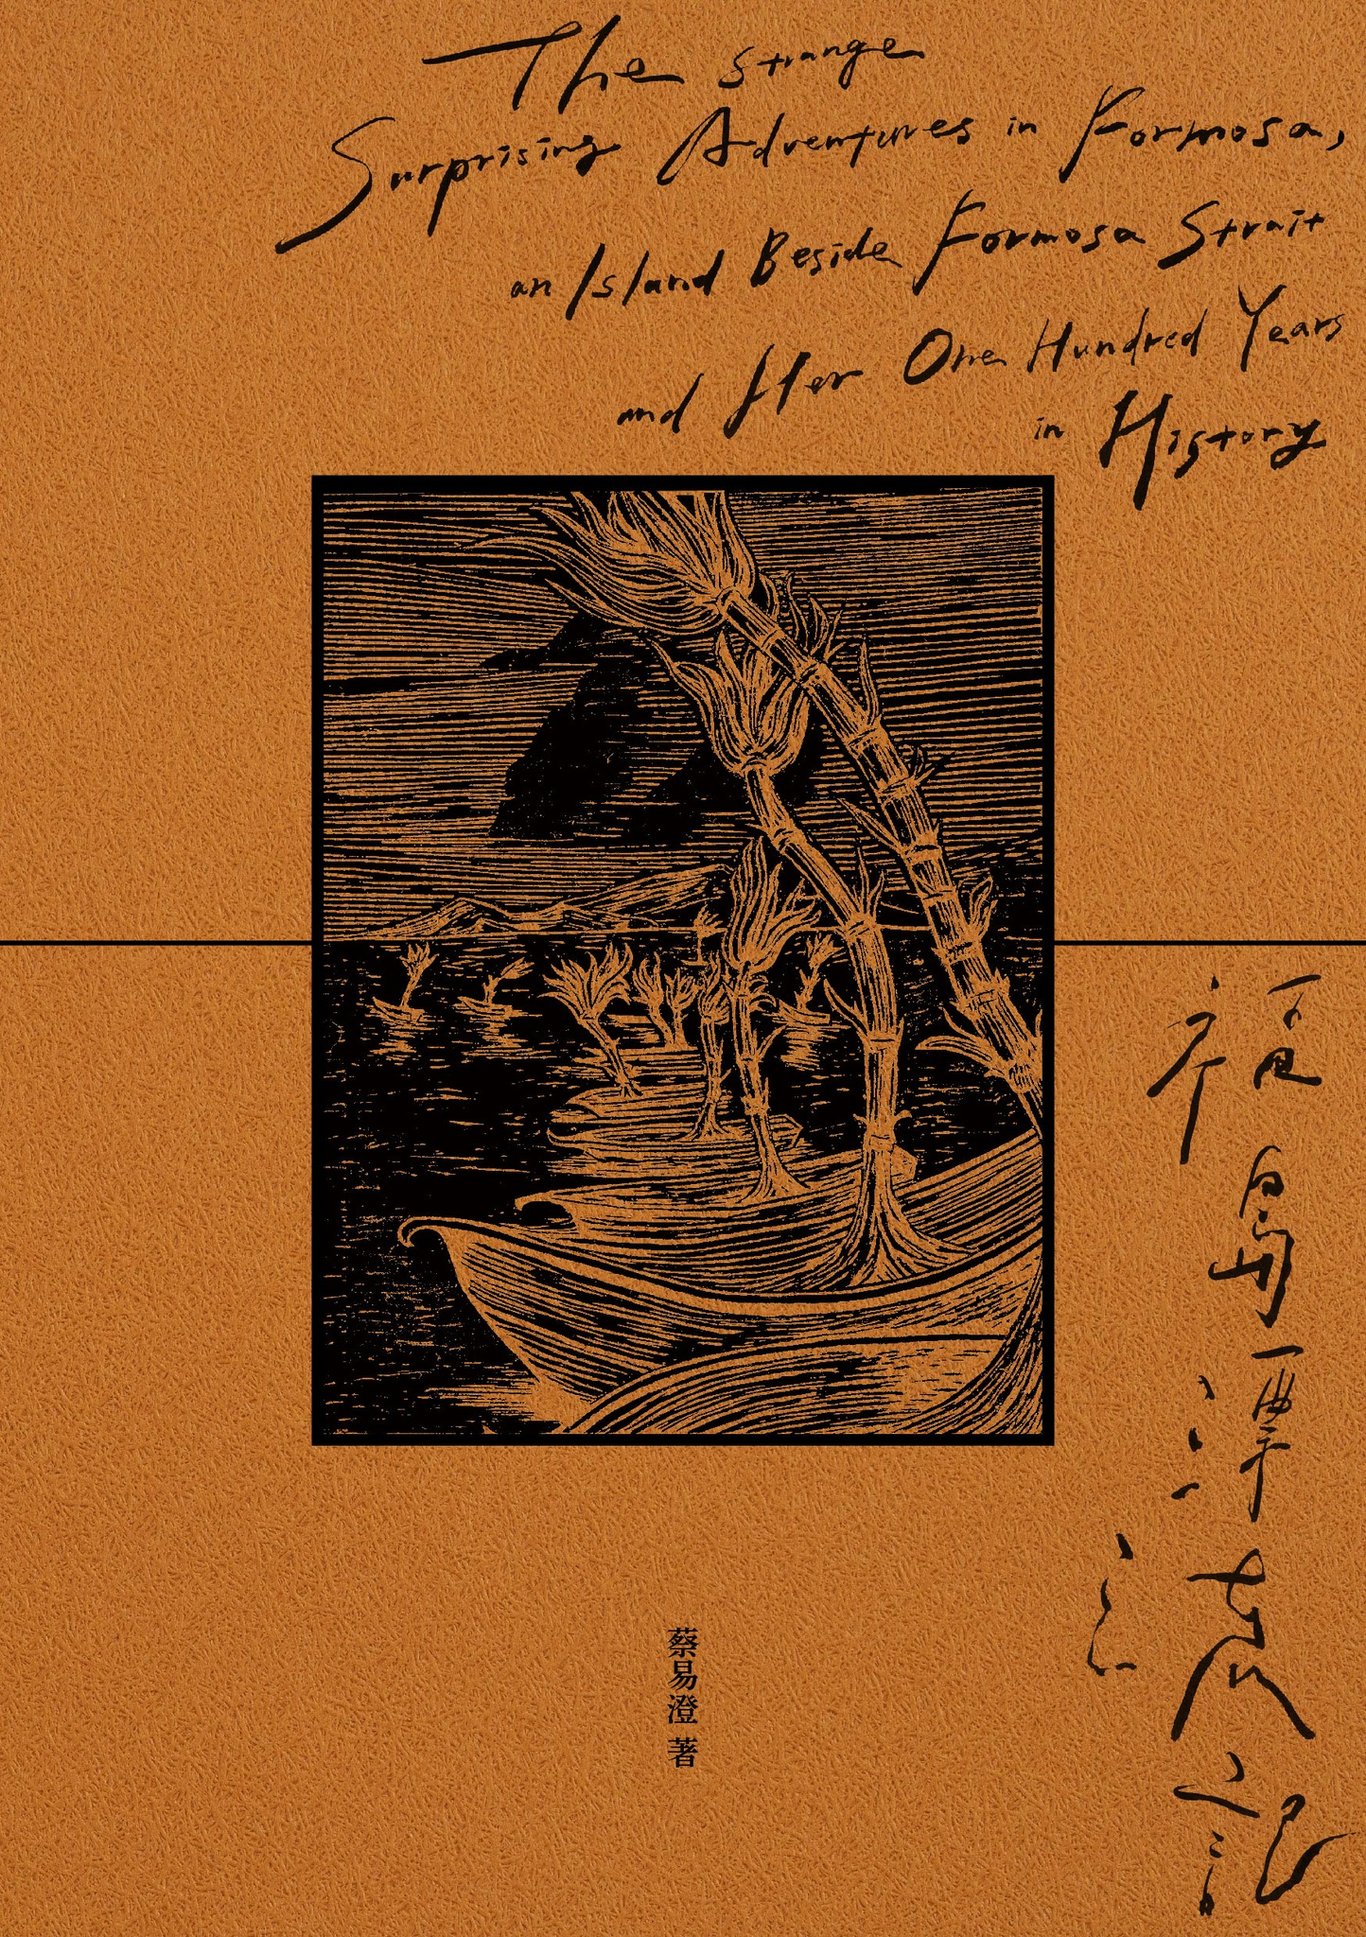 The Strange
Surprising Adventures in Formosa,
an Island Beside Formosa Strait
and Her One Hundred Years
in History
福島漂流記
蔡易澄 著